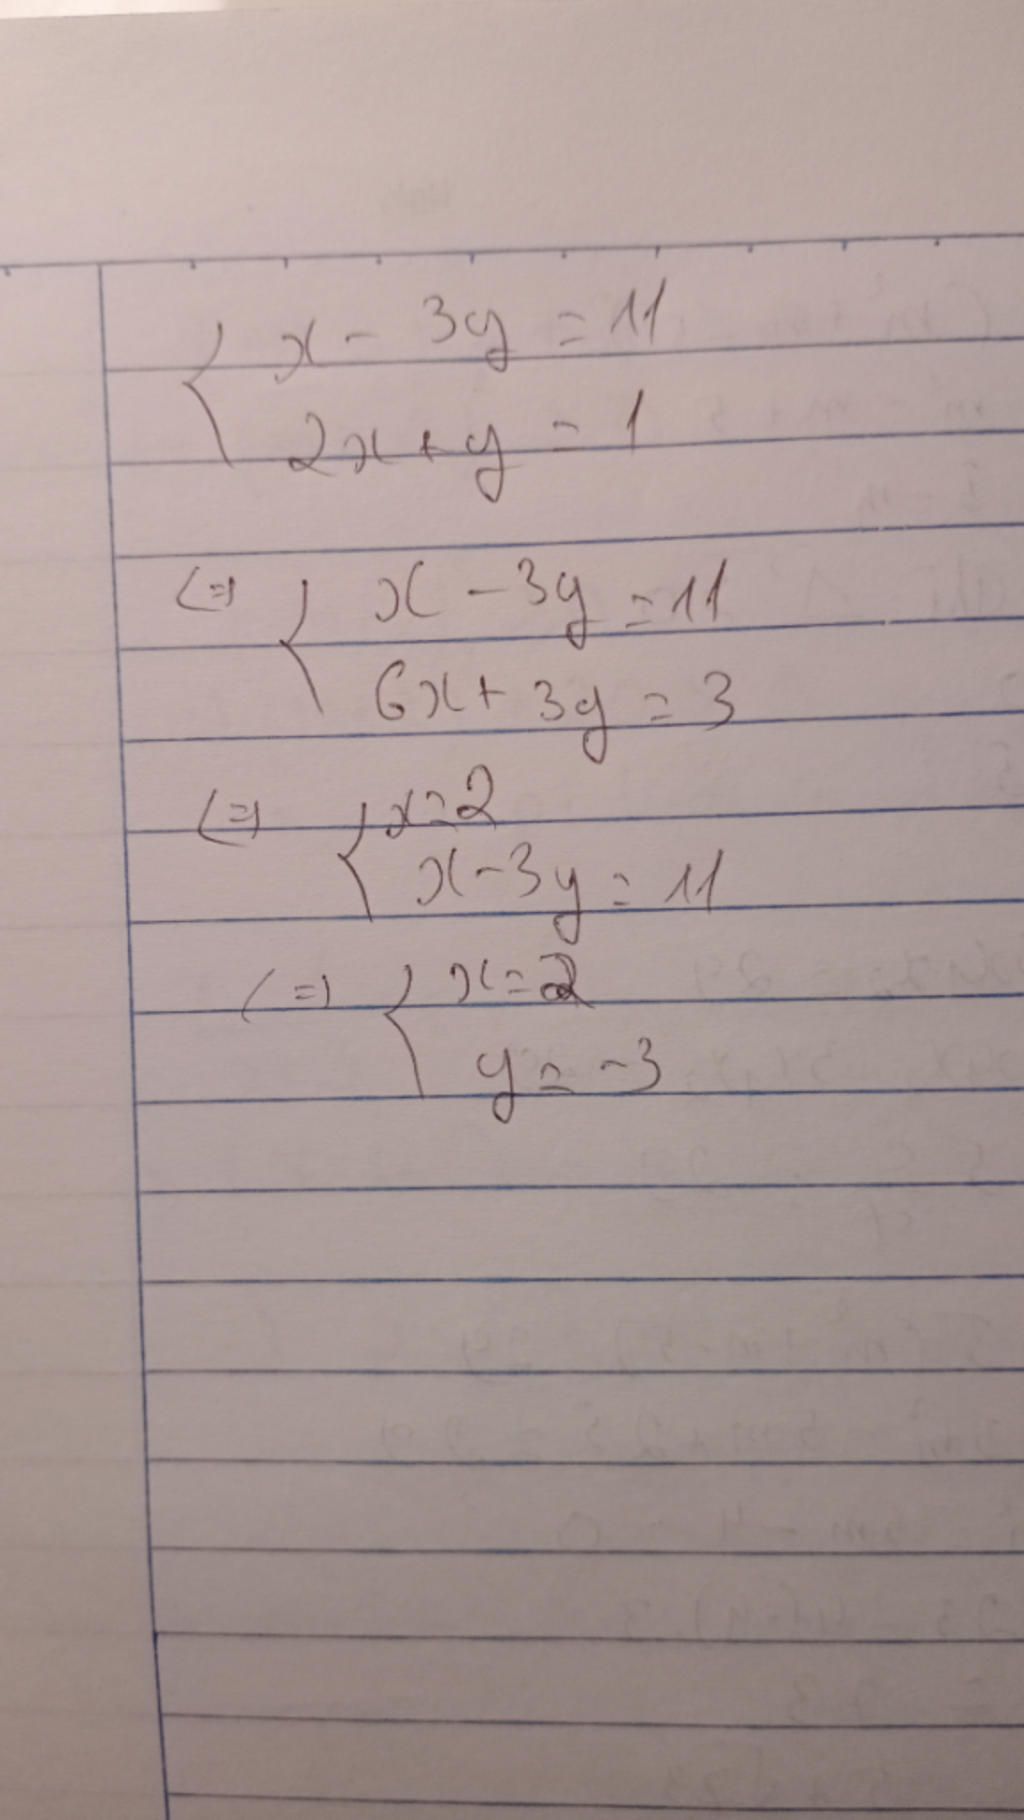 { x - 3y = 11
2x + y = 1
<=> { x - 3y = 11
6x + 3y = 3
<=> { x = 2
x - 3y = 11
<=> { x = 2
y = -3